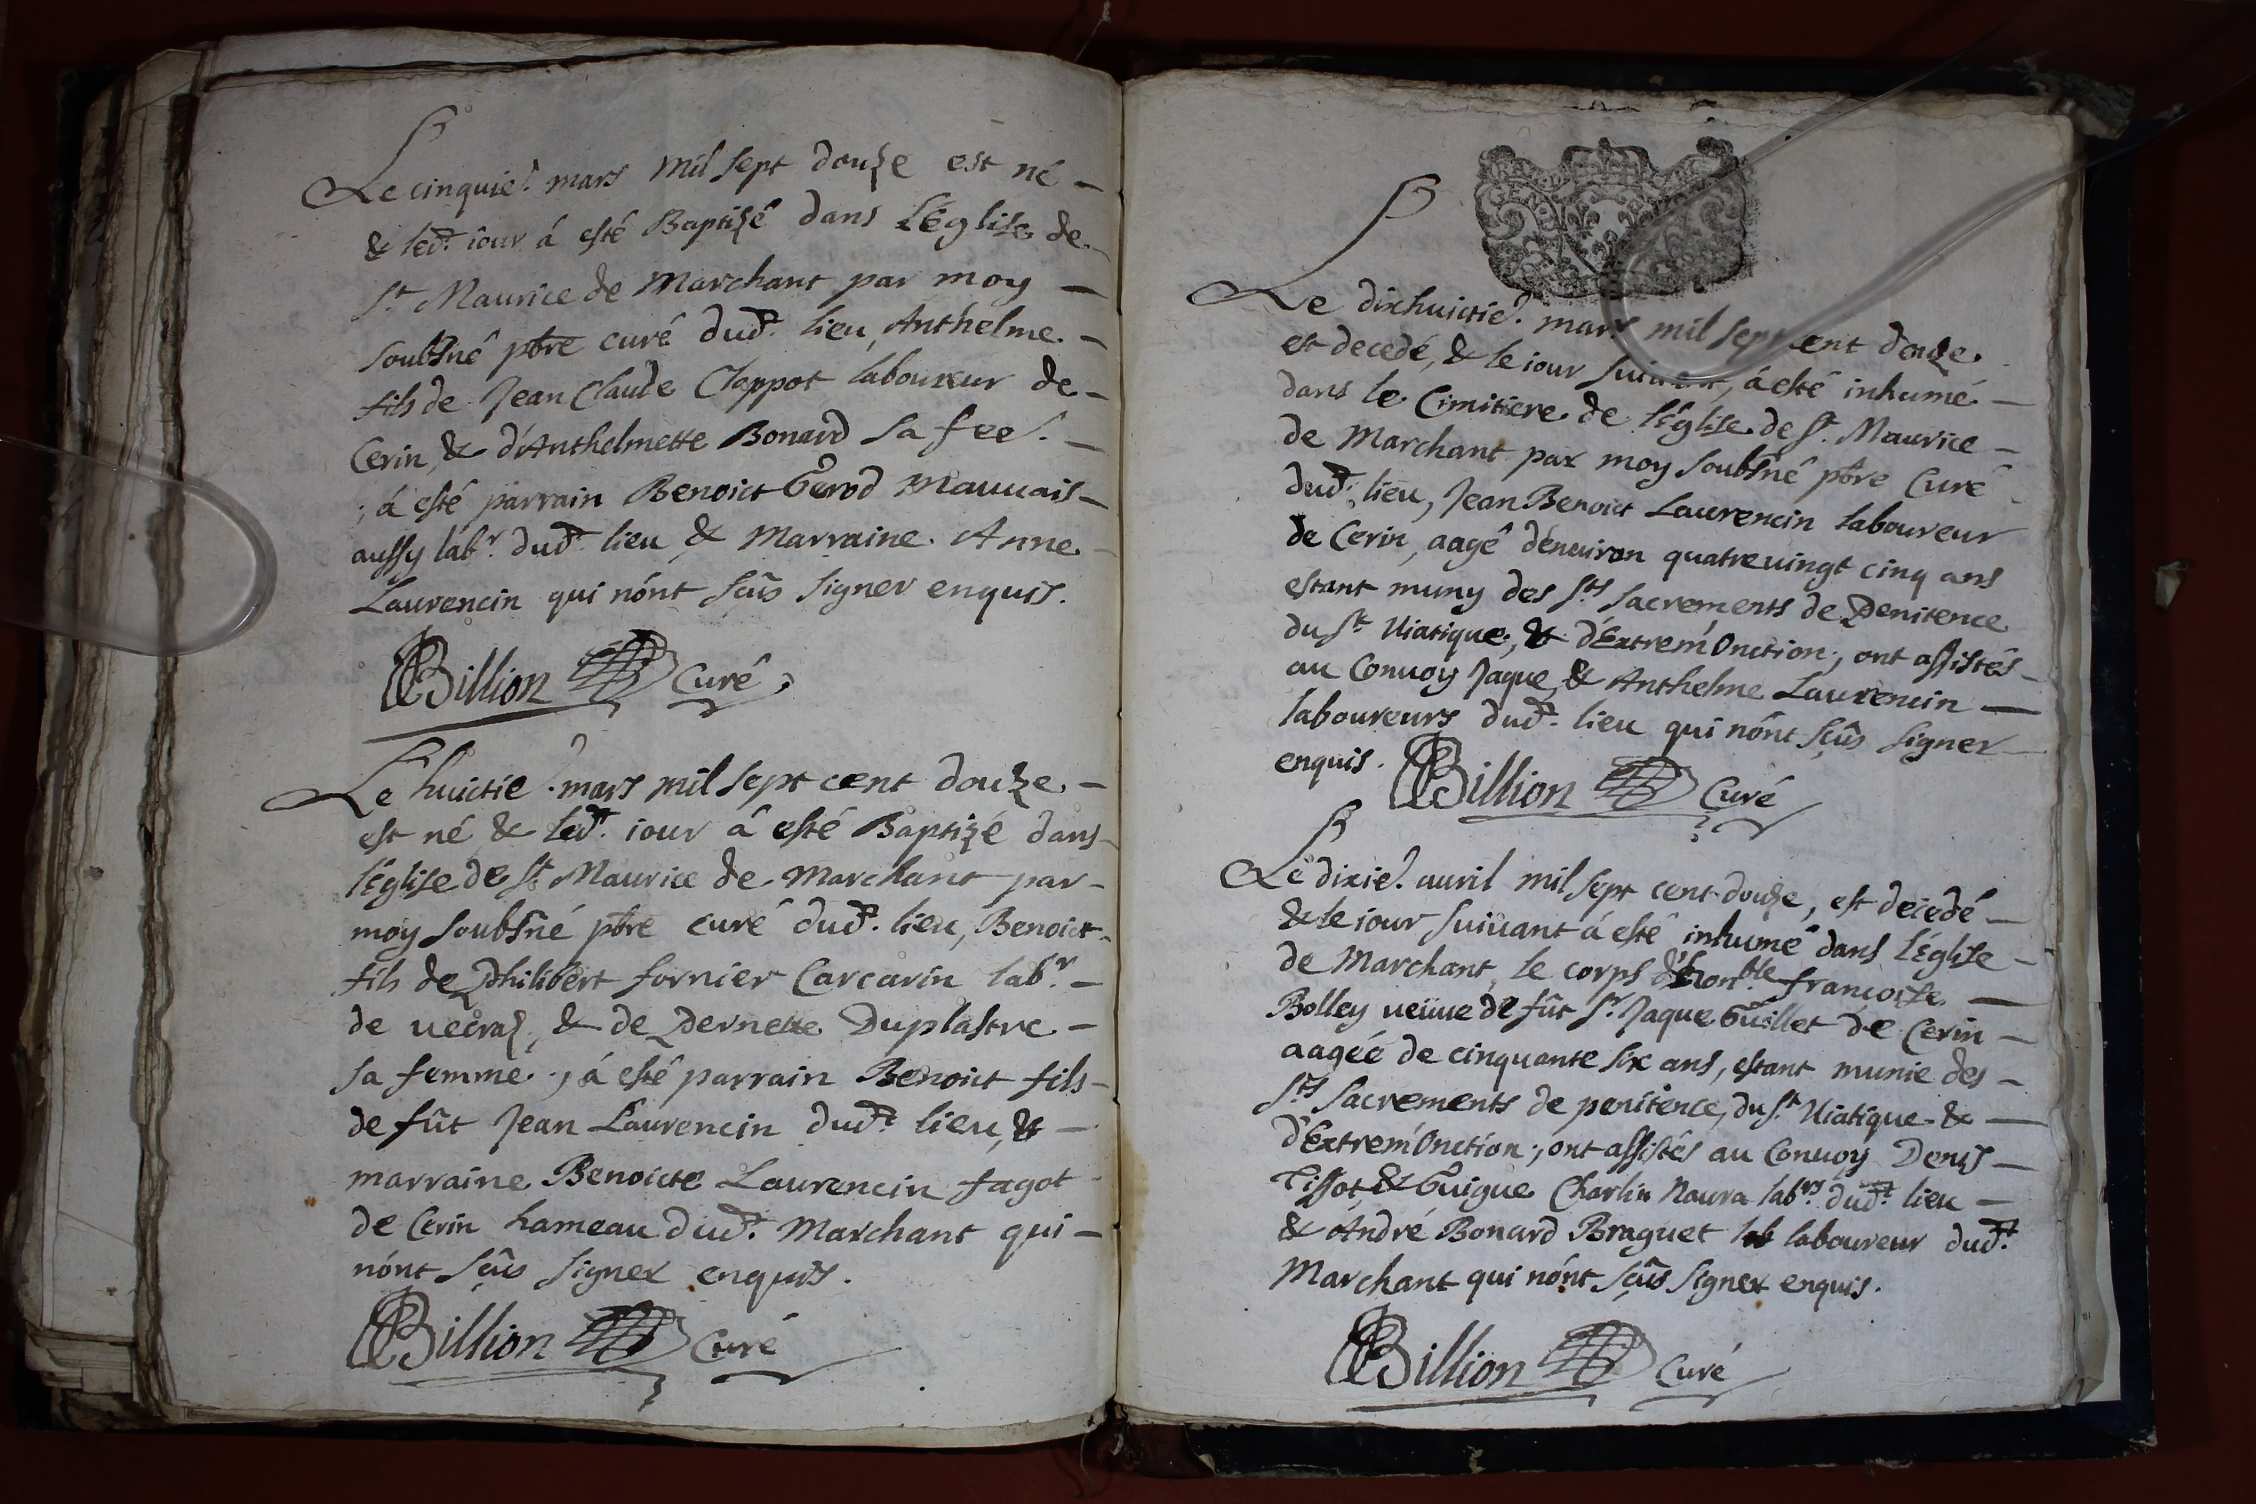 Le cinquie. mars mil sept douze est né –
& led.t iour á esté Baptizé dans l'église de –
S.t Maurice de Marchant par moy –
soubsné pbre curé dud.t lieu, Anthelme –
fils de Jean Claude Cloppot laboureur de –
Cerin, & d'Anthelmette Bonard sa fee. –
; á esté parrain Benoict Gerod Mauuais –
aussy lab.r dud.t lieu & Marraine Anne –
Laurencin qui n'ont sçûs signer enquis.
Billion Curé
Le huictie. mars mil sept cent douze –
est né & led.t iour á esté Baptizé dans –
l'église de S.t Maurice de Marchant par –
moy soubsné pbre curé dud.t lieu, Benoict –
fils de Philibert fornier Carcarin lab.r –
de uecraz, & de Pernette Duplastre –
sa femme ; á esté parrain Benoict fils –
de fût Jean Laurencin dud.t lieu, & –
marraine Benoicte Laurencin fagot –
de Cerin hameau dud.t Marchant qui –
n'ont sçûs signer enquis.
Billion Curé
GEN
Le dixhuictie. mars mil sept cent douze
est decedé, & le iour suiuant, á esté inhumé –
dans le Cimitiere de l'église de S.t Maurice –
de Marchant par moy soubsné pbre Curé –
dud.t lieu, Jean Benoict Laurencin laboureur
de Cerin, aagé d'enuiron quatreuingt cinq ans
estant muny des S.ts sacrements de Penitence
du S.t Uiatique, & d'Extrem'Onction ; ont assistés –
au Conuoy Jaque & Anthelme Laurencin –
laboureurs dud.t lieu qui n'ont sçûs signer –
enquis. Billion Curé
Le dixie. auril mil sept cent douze, est decedé –
& le iour suiuant á esté inhumé dans l'église –
de Marchant, le corps d'hon.ble francoise –
Bolley ueuue de fût S.r Jaque Guillet de Cerin –
aagée de cinquante six ans, estant munie des –
S.ts Sacrements de penitence, du S.t Uiatique & –
d'Extrem'Onction ; ont assistés au Conuoy Denis –
Tissot & Guigue Charlin Naura lab.rs dud.t lieu –
& André Bonard Braguet laboureur dud.t
Marchant qui n'ont sçûs signer enquis.
Billion Curé